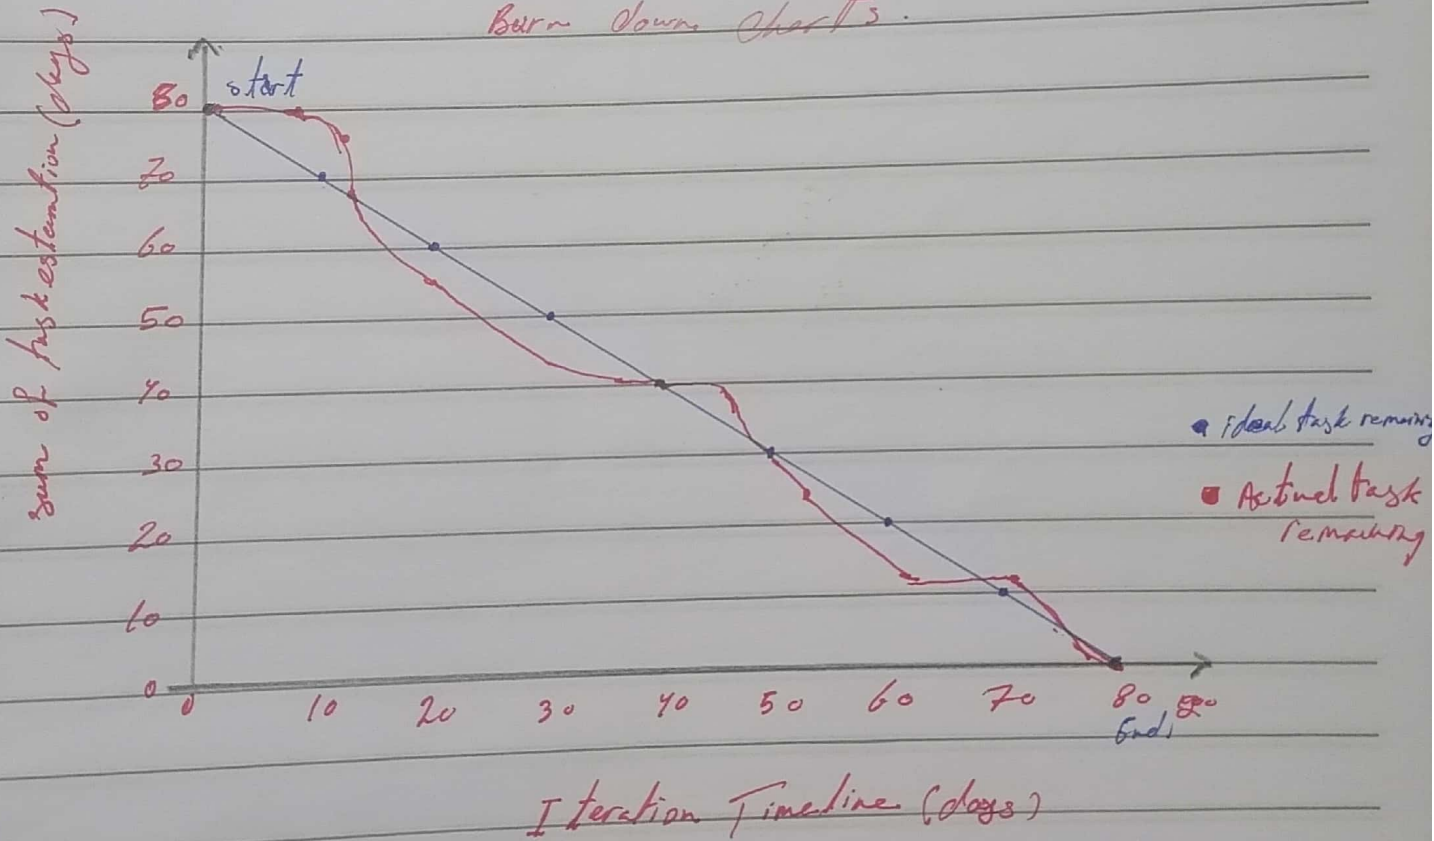 Burn down charts.
Sum of task estamtion (days)
start
80
70
60
50
40
30
20
10
0
0 10 20 30 40 50 60 70 80
End
Iteration Timeline (days)
ideal task remaining
Actual task
remaining